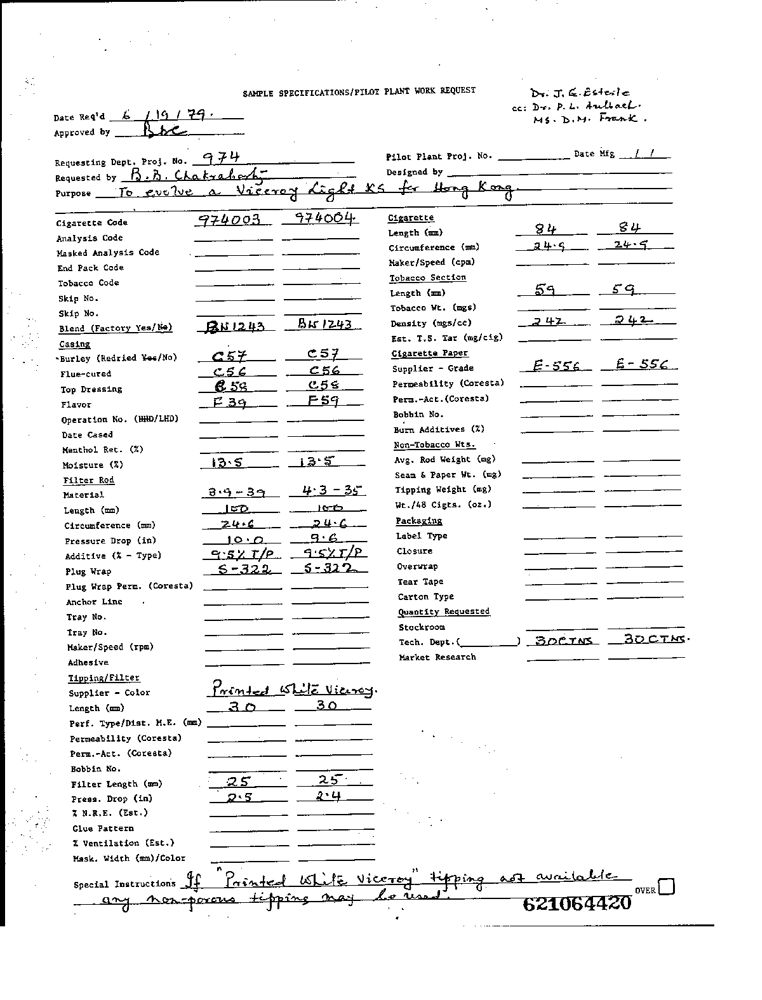 SAMPLE SPECIFICATIONS/PILOT PLANT WORK REQUEST
Dr. J. G. Esterle
cc: Dr. P. L. Aulbach.
Ms. D. M. Frank.
Date Req'd 6 / 19 / 79.
Approved by BBC
Requesting Dept. Proj. No. 974
Pilot Plant Proj. No. Date Mfg / /
Requested by B. B. Chakraborty
Designed by
Purpose To evolve a Viceroy Light KS for Hong Kong.
Cigarette Code 974003 974004
Analysis Code
Masked Analysis Code
End Pack Code
Tobacco Code
Skip No.
Skip No.
Blend (Factory Yes/No) BW1243 BW1243
Casing
Burley (Redried Yes/No) C57 C57
Flue-cured C56 C56
Top Dressing C58 C58
Flavor F39 F59
Operation No. (HHD/LHD)
Date Cased
Menthol Ret. (%)
Moisture (%) 13.5 13.5
Filter Rod
Material 3.9-39 4.3-35
Length (mm) 150 150
Circumference (mm) 24.6 24.6
Pressure Drop (in) 10.0 9.6
Additive (% - Type) 9.5% T/P 9.5% T/P
Plug Wrap S-322 S-322
Plug Wrap Perm. (Coresta)
Anchor Line
Tray No.
Tray No.
Maker/Speed (rpm)
Adhesive
Tipping/Filter
Supplier - Color Printed White Viceroy.
Length (mm) 30 30
Perf. Type/Dist. M.E. (mm)
Permeability (Coresta)
Perm.-Act. (Coresta)
Bobbin No.
Filter Length (mm) 25 25
Press. Drop (in) 2.5 2.4
% N.R.E. (Est.)
Glue Pattern
% Ventilation (Est.)
Mask. Width (mm)/Color
Cigarette
Length (mm) 84 84
Circumference (mm) 24.9 24.9
Maker/Speed (cpm)
Tobacco Section
Length (mm) 59 59
Tobacco Wt. (mgs)
Density (mgs/cc) 242 242
Est. T.S. Tar (mg/cig)
Cigarette Paper
Supplier - Grade E-556 E-556
Permeability (Coresta)
Perm.-Act.(Coresta)
Bobbin No.
Burn Additives (%)
Non-Tobacco Wts.
Avg. Rod Weight (mg)
Seam & Paper Wt. (mg)
Tipping Weight (mg)
Wt./48 Cigts. (oz.)
Packaging
Label Type
Closure
Overwrap
Tear Tape
Carton Type
Quantity Requested
Stockroom
Tech. Dept.( ) 30CTNS 30CTNS.
Market Research
Special Instructions If "Printed White Viceroy" tipping not available
any non-porous tipping may be used.
OVER
621064420